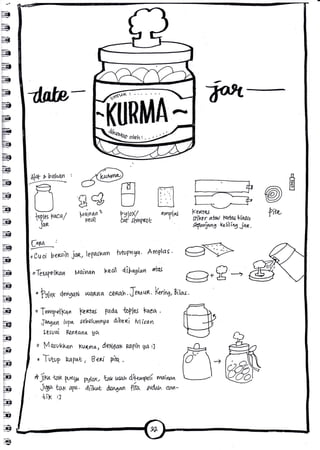 date
jar
untuk :
KURMA
dikemas oleh :
Alat & bahan :
kurma
toples kaca/
jar
mainan²
kecil
pylox/
cat semprot
amplas
kertas
stiker atau kertas biasa
sepanjang keliling jar.
pita
Cara
Cuci bersih jar, lepaskan tutupnya. Amplas.
Tempelkan mainan kecil dibagian atas
Pylox dengan warna cerah. Jemur. Kering, bilas.
Tempelkan kertas pada toples kaca.
Jangan lupa sebelumnya diberi tulisan
sesuai rencana ya
Masukkan kurma, dengan rapih ya :)
Tutup rapat, Beri pita.
* Jika tak punya pylox, tak usah ditempeli mainan
juga tak apa. diikat dengan pita sudah can-
tik :)
32